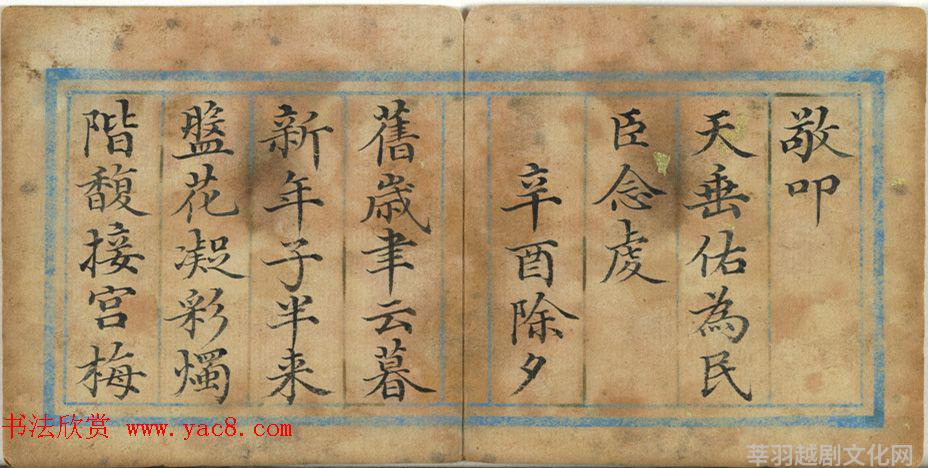 敬叩
天垂佑為民
臣念虔
辛酉除夕
舊歲聿云暮
新年子半来
盤花凝彩燭
階馥接宫梅
书法欣赏 www.yac8.com
莘羽越剧文化网